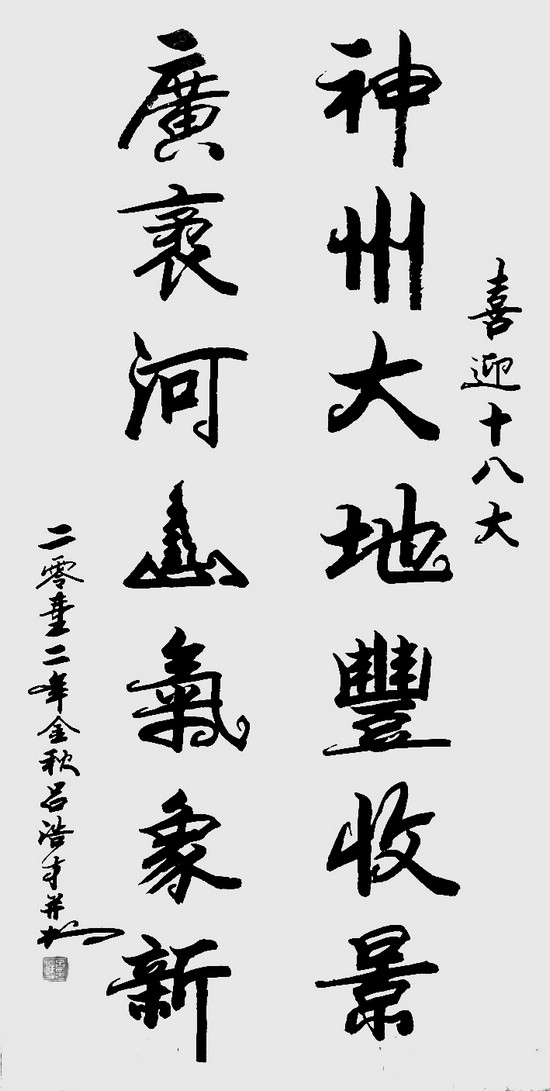 喜迎十八大
神州大地豐收景
廣袤河山氣象新
二零壹二年金秋呂浩才并